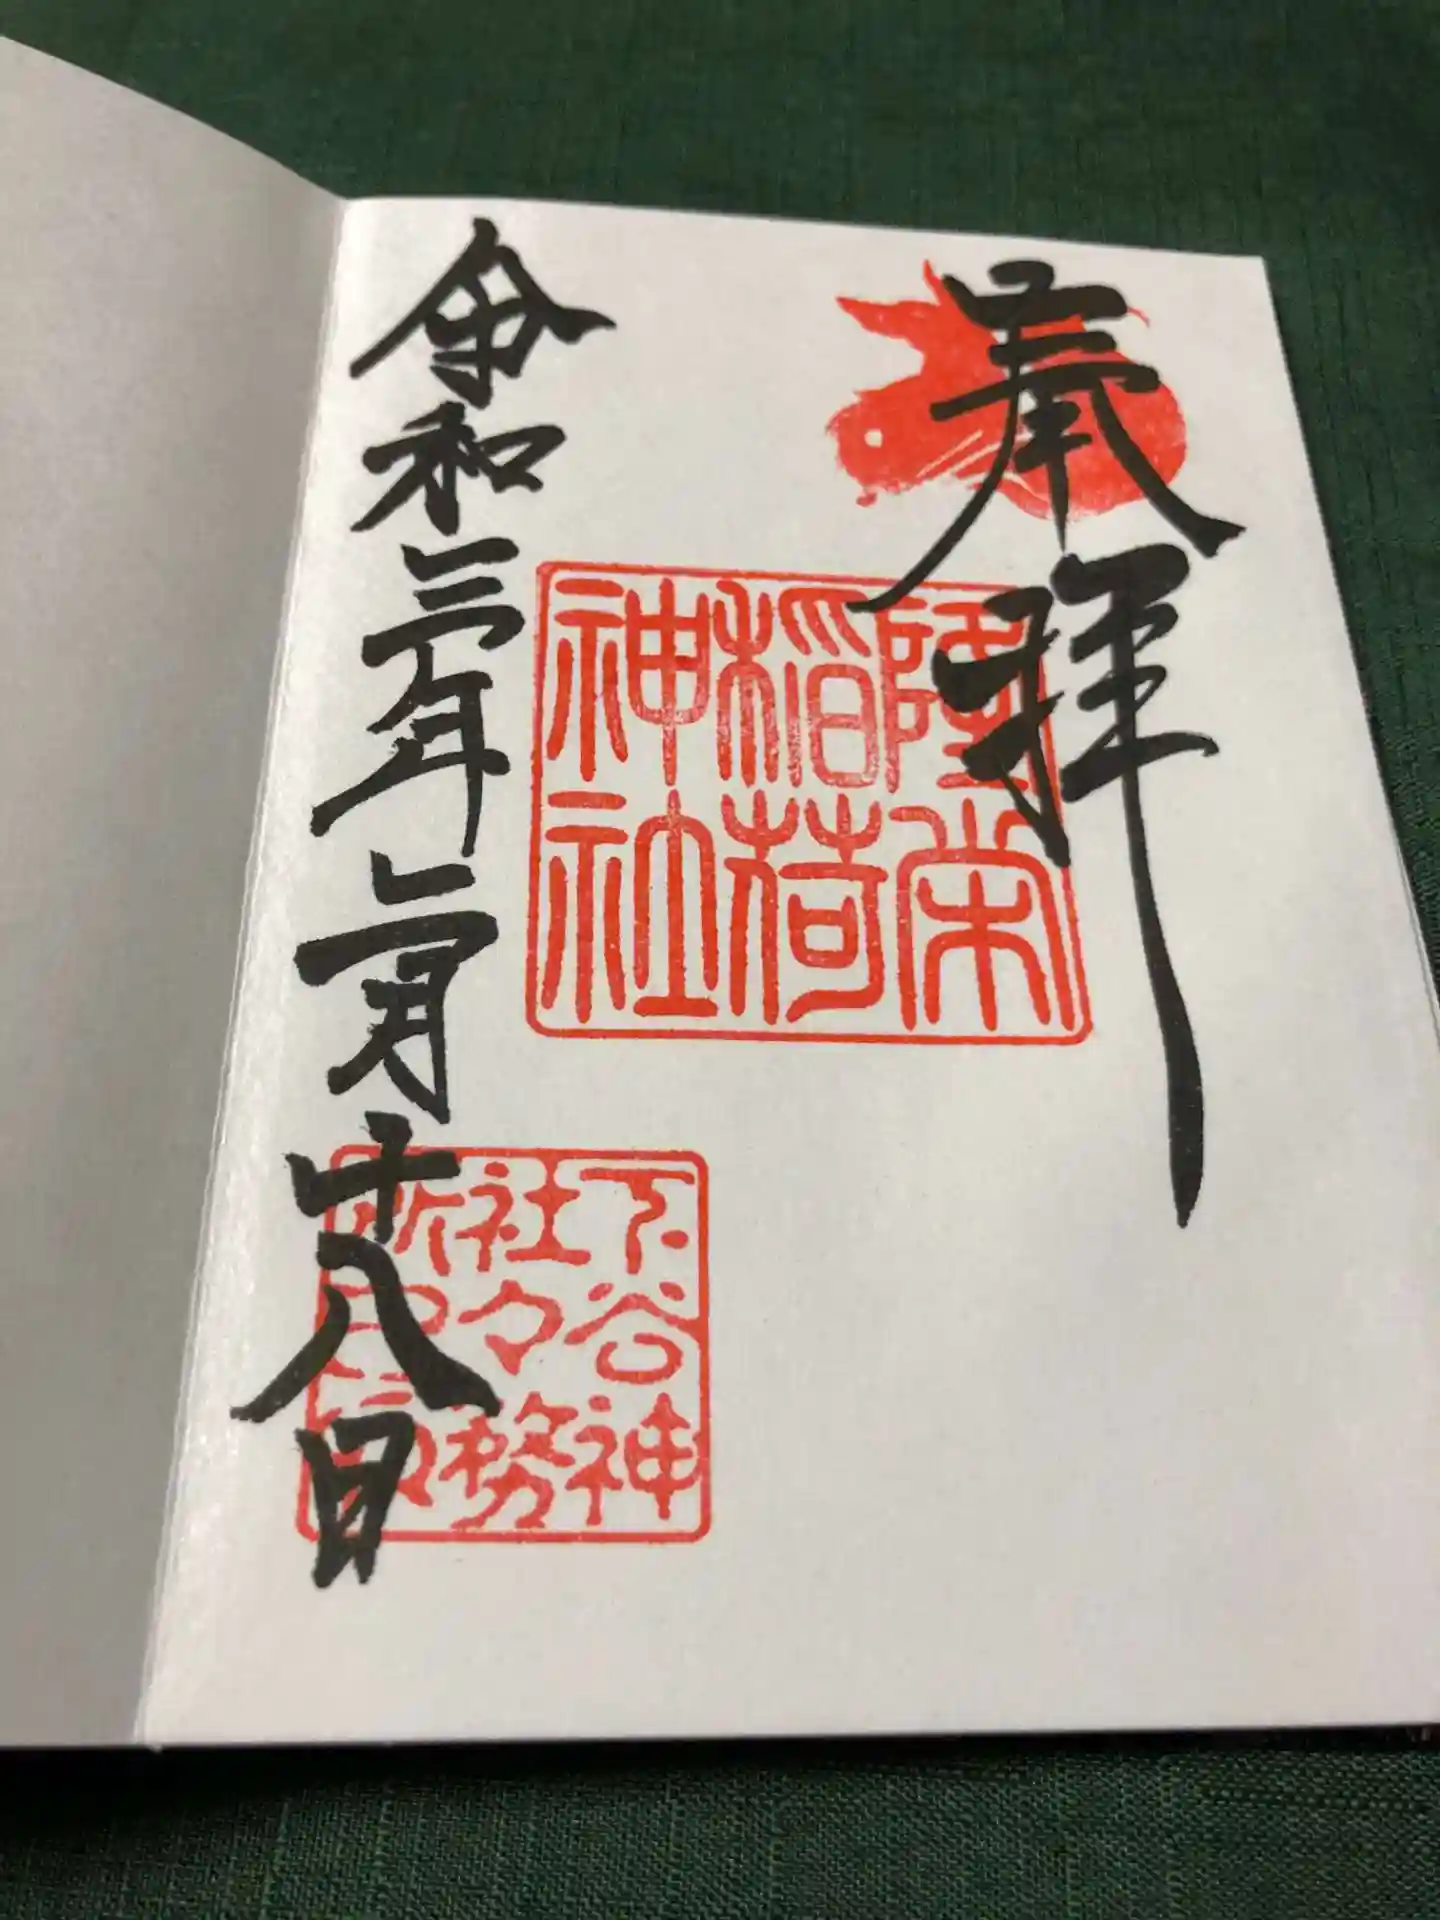 奉拝
隆栄
稲荷
神社
下谷神
社々務
所之印
令和三年二月十八日